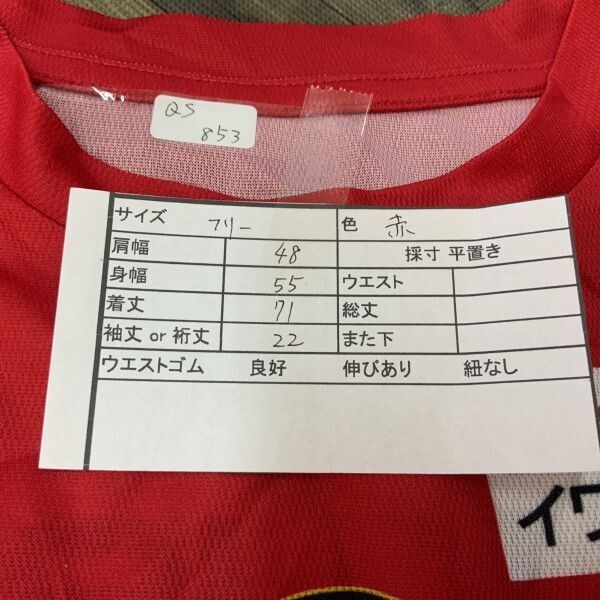 QS
853
サイズ フリー 色 赤
肩幅 48 採寸 平置き
身幅 55 ウエスト
着丈 71 総丈
袖丈 or 裄丈 22 また下
ウエストゴム 良好 伸びあり 紐なし
イワ